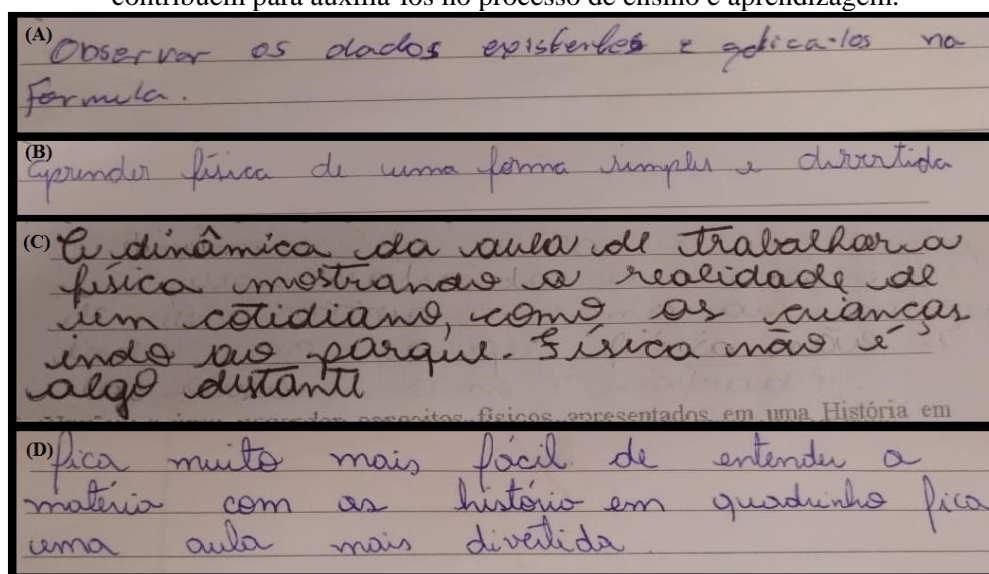 contribuem para auxiliá-los no processo de ensino e aprendizagem.
(A) Observar os dados existentes e aplica-los na
Formula.
(B) Aprender física de uma forma simples e divertida
(C) A dinâmica da aula de trabalhar a
física mostrando a realidade de
um cotidiano, como as crianças
indo ao parque. Física não é
algo distante
conceitos físicos apresentados em uma História em
(D) fica muito mais fácil de entender a
matéria com as histório em quadrinho fica
uma aula mais divertida